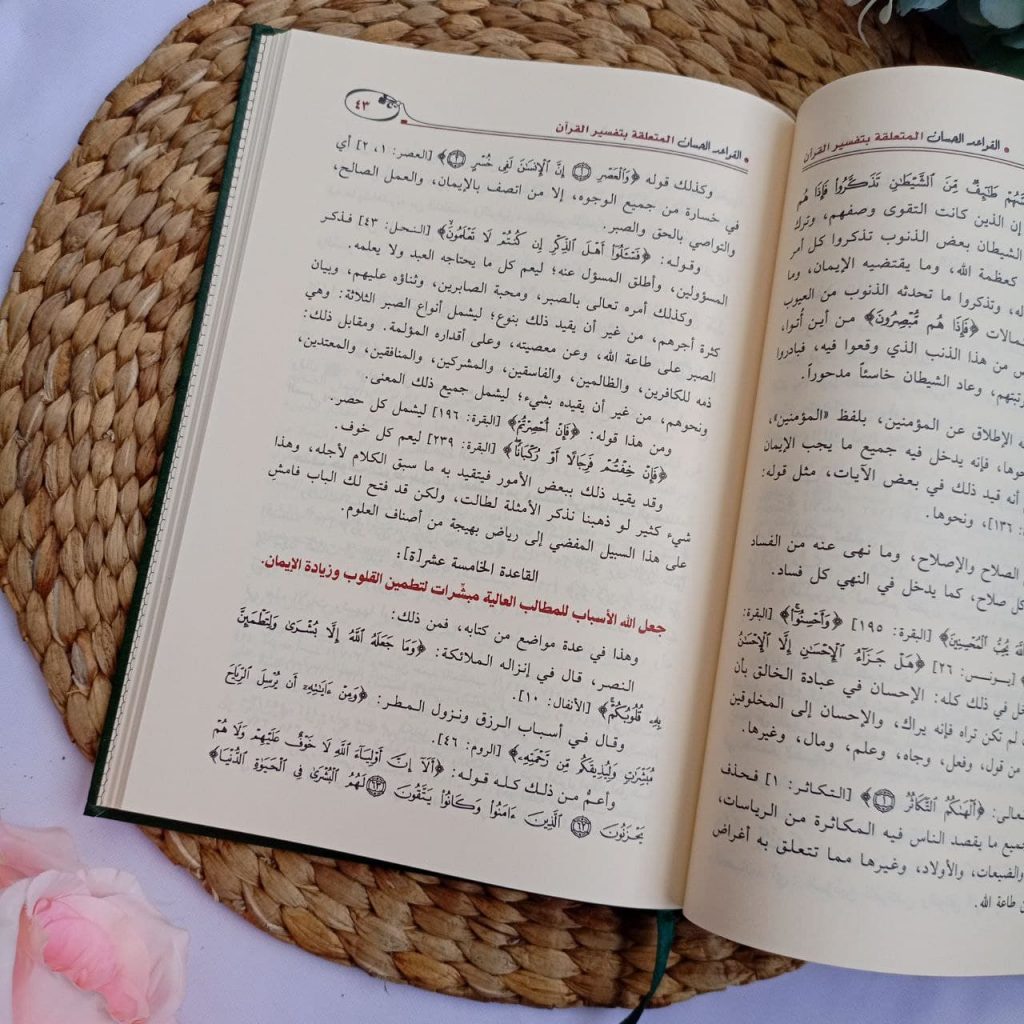 القواعد الحسان المتعلقة بتفسير القرآن
طَٰٓئِفٌ مِّنَ ٱلشَّيْطَٰنِ تَذَكَّرُوا۟ فَإِذَا هُم
إن الذين كانت التقوى وصفهم، وترك
الشيطان بعض الذنوب تذكروا كل أمر
كعظمة الله، وما يقتضيه الإيمان، وما
له، وتذكروا ما تحدثه الذنوب من العيوب
﴿فَإِذَا هُم مُّبْصِرُونَ﴾ من أين أُتوا،
من هذا الذنب الذي وقعوا فيه، فبادروا
وعاد الشيطان خاسئاً مدحوراً.
الإطلاق عن المؤمنين، بلفظ «المؤمنين»،
فإنه يدخل فيه جميع ما يجب الإيمان
أنه قيد ذلك في بعض الآيات، مثل قوله:
١٣٦]، ونحوها.
الصلاح والإصلاح، وما نهى عنه من الفساد
كل صلاح، كما يدخل في النهي كل فساد.
يُحِبُّ ٱلْمُحْسِنِينَ﴾ [البقرة: ١٩٥] ﴿وَأَحْسِنُوٓا۟﴾ [البقرة:
[يونس: ٢٦] ﴿هَلْ جَزَآءُ ٱلْإِحْسَٰنِ إِلَّا ٱلْإِحْسَٰنُ
في ذلك كله: الإحسان في عبادة الخالق بأن
لم تكن تراه فإنه يراك، والإحسان إلى المخلوقين
من قول، وفعل، وجاه، وعلم، ومال، وغيرها.
﴿أَلْهَىٰكُمُ ٱلتَّكَاثُرُ ١﴾ [التكاثر: ١] فحذف
ما يقصد الناس فيه المكاثرة من الرياسات،
والضيعات، والأولاد، وغيرها مما تتعلق به أغراض
طاعة الله.
القواعد الحسان المتعلقة بتفسير القرآن ٤٣
وكذلك قوله ﴿وَٱلْعَصْرِ ١ إِنَّ ٱلْإِنسَٰنَ لَفِى خُسْرٍ ٢﴾ [العصر: ١، ٢] أي
في خسارة من جميع الوجوه، إلا من اتصف بالإيمان، والعمل الصالح،
والتواصي بالحق والصبر.
وقوله: ﴿فَسْـَٔلُوٓا۟ أَهْلَ ٱلذِّكْرِ إِن كُنتُمْ لَا تَعْلَمُونَ﴾ [النحل: ٤٣] فذكر
المسؤولين، وأطلق المسؤل عنه؛ ليعم كل ما يحتاجه العبد ولا يعلمه.
وكذلك أمره تعالى بالصبر، ومحبة الصابرين، وثناؤه عليهم، وبيان
كثرة أجرهم، من غير أن يقيد ذلك بنوع؛ ليشمل أنواع الصبر الثلاثة: وهي
الصبر على طاعة الله، وعن معصيته، وعلى أقداره المؤلمة. ومقابل ذلك:
ذمه للكافرين، والظالمين، والفاسقين، والمشركين، والمنافقين، والمعتدين،
ونحوهم، من غير أن يقيده بشيء؛ ليشمل جميع ذلك المعنى.
ومن هذا قوله: ﴿فَإِنْ أُحْصِرْتُمْ﴾ [البقرة: ١٩٦] ليشمل كل حصر.
﴿فَإِنْ خِفْتُمْ فَرِجَالًا أَوْ رُكْبَانًا﴾ [البقرة: ٢٣٩] ليعم كل خوف.
وقد يقيد ذلك ببعض الأمور فيتقيد به ما سبق الكلام لأجله، وهذا
شيء كثير لو ذهبنا نذكر الأمثلة لطالت، ولكن قد فتح لك الباب فامش
على هذا السبيل المفضي إلى رياض بهيجة من أصناف العلوم.
القاعدة الخامسة عشر[ة]:
جعل الله الأسباب للمطالب العالية مبشّرات لتطمين القلوب وزيادة الإيمان.
وهذا في عدة مواضع من كتابه، فمن ذلك:
النصر، قال في إنزاله الملائكة: ﴿وَمَا جَعَلَهُ ٱللَّهُ إِلَّا بُشْرَىٰ وَلِتَطْمَئِنَّ
بِهِۦ قُلُوبُكُمْ﴾ [الأنفال: ١٠].
وقال في أسباب الرزق ونزول المطر: ﴿وَمِنْ ءَايَٰتِهِۦٓ أَن يُرْسِلَ ٱلرِّيَاحَ
مُبَشِّرَٰتٍ وَلِيُذِيقَكُم مِّن رَّحْمَتِهِۦ﴾ [الروم: ٤٦].
وأعمُّ من ذلك كله قوله: ﴿أَلَآ إِنَّ أَوْلِيَآءَ ٱللَّهِ لَا خَوْفٌ عَلَيْهِمْ وَلَا هُمْ
يَحْزَنُونَ ٦٢ ٱلَّذِينَ ءَامَنُوا۟ وَكَانُوا۟ يَتَّقُونَ ٦٣ لَهُمُ ٱلْبُشْرَىٰ فِى ٱلْحَيَوٰةِ ٱلدُّنْيَا﴾